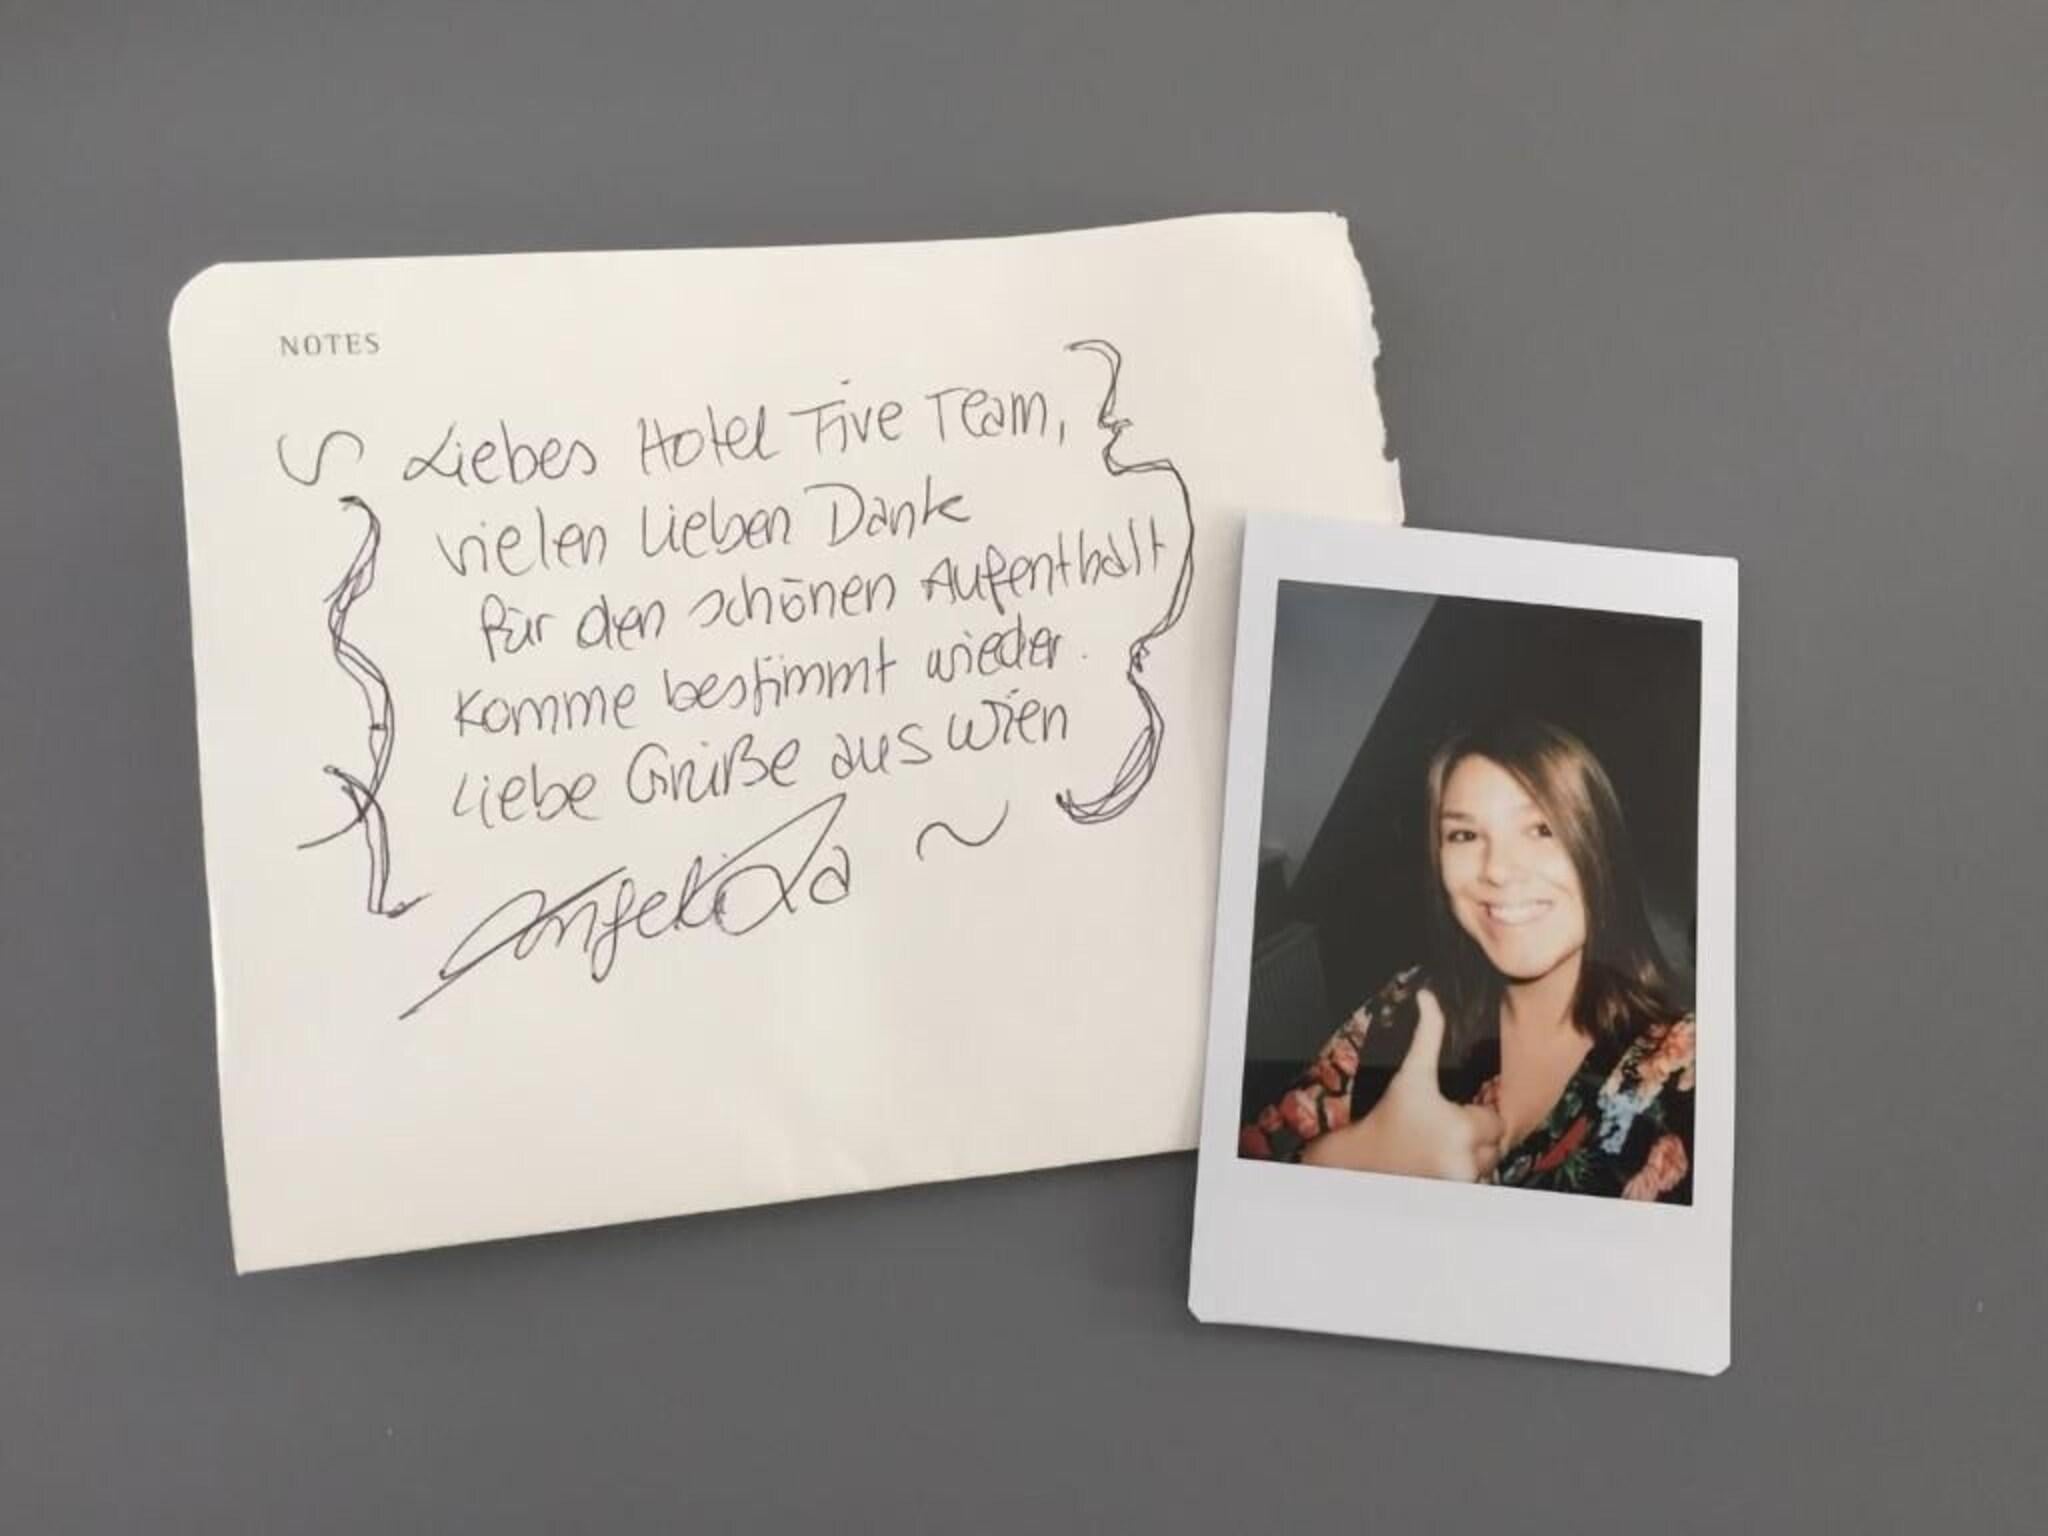 NOTES
Liebes Hotel Five Team,
vielen lieben Dank
für den schönen Aufenthalt
komme bestimmt wieder.
Liebe Grüße aus Wien
Angelika